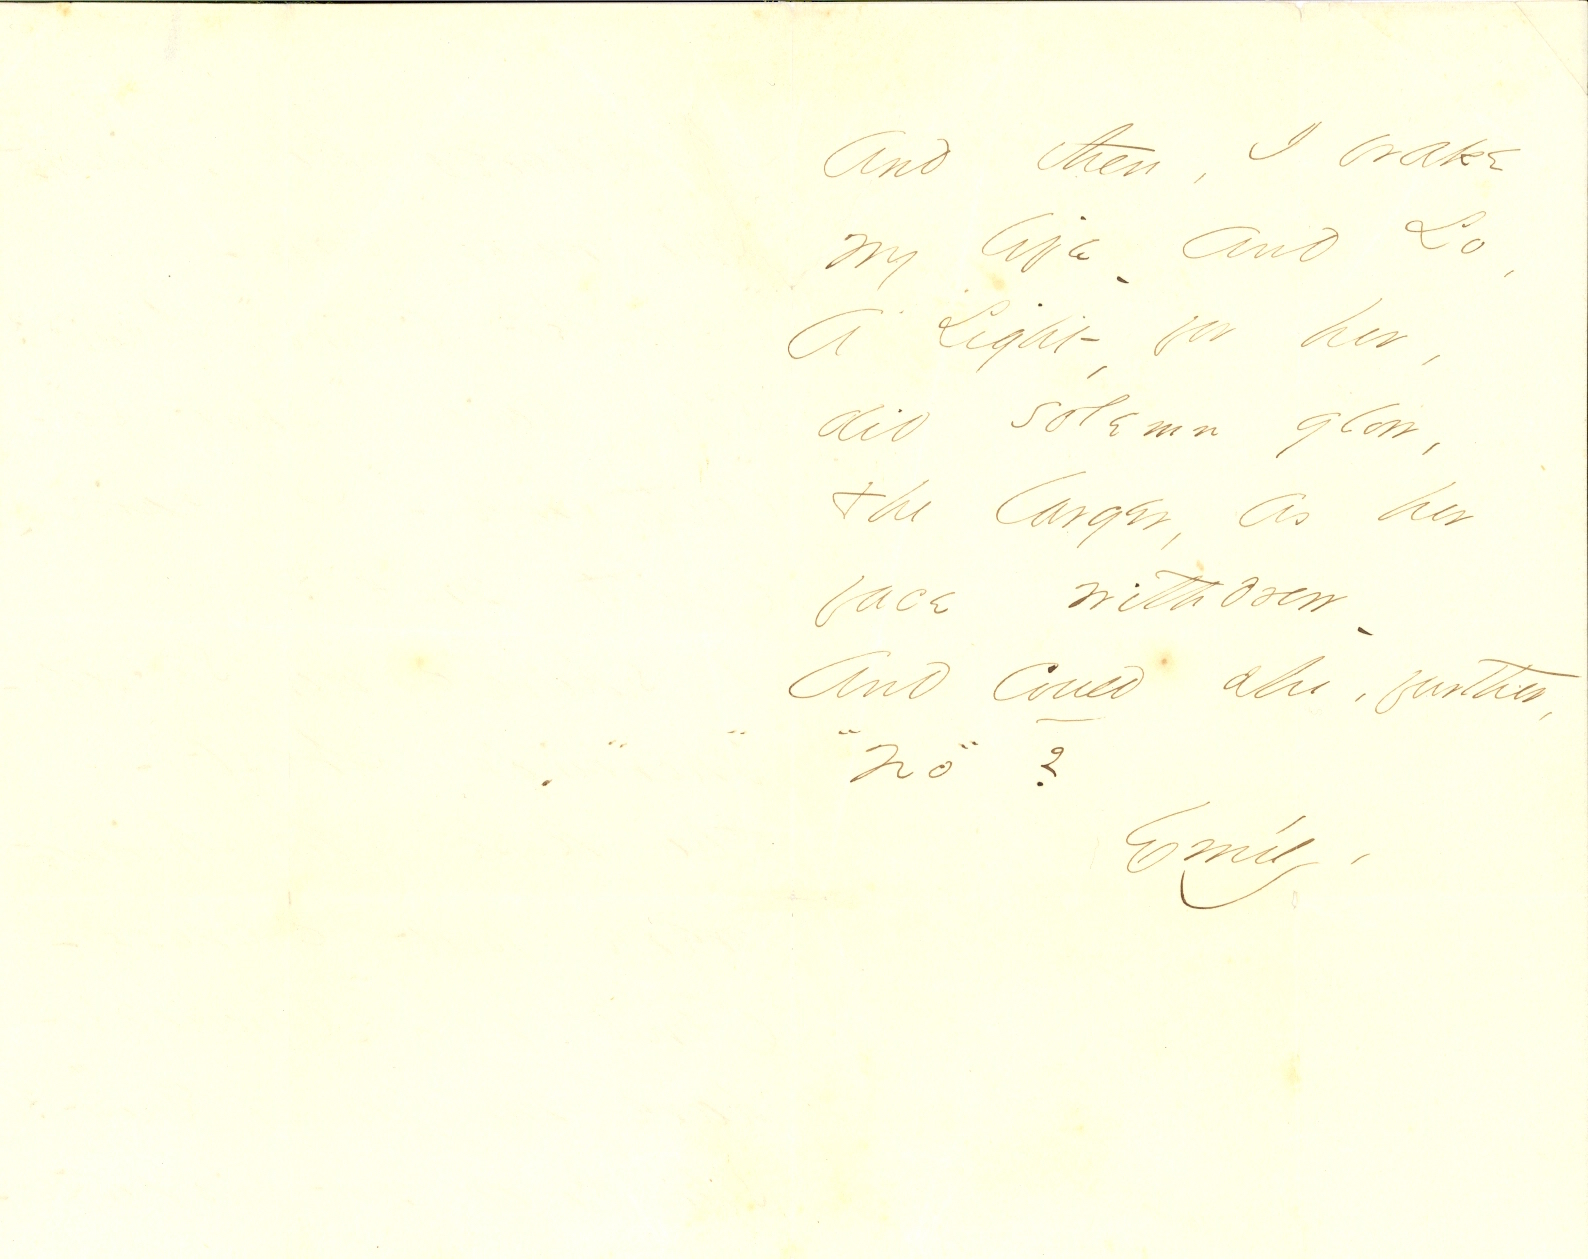 And then, I brake
my life - And Lo,
A Light, for her,
did solemn glow,
The larger, as her
face withdrew -
And could she, further,
"No"?
Emily.